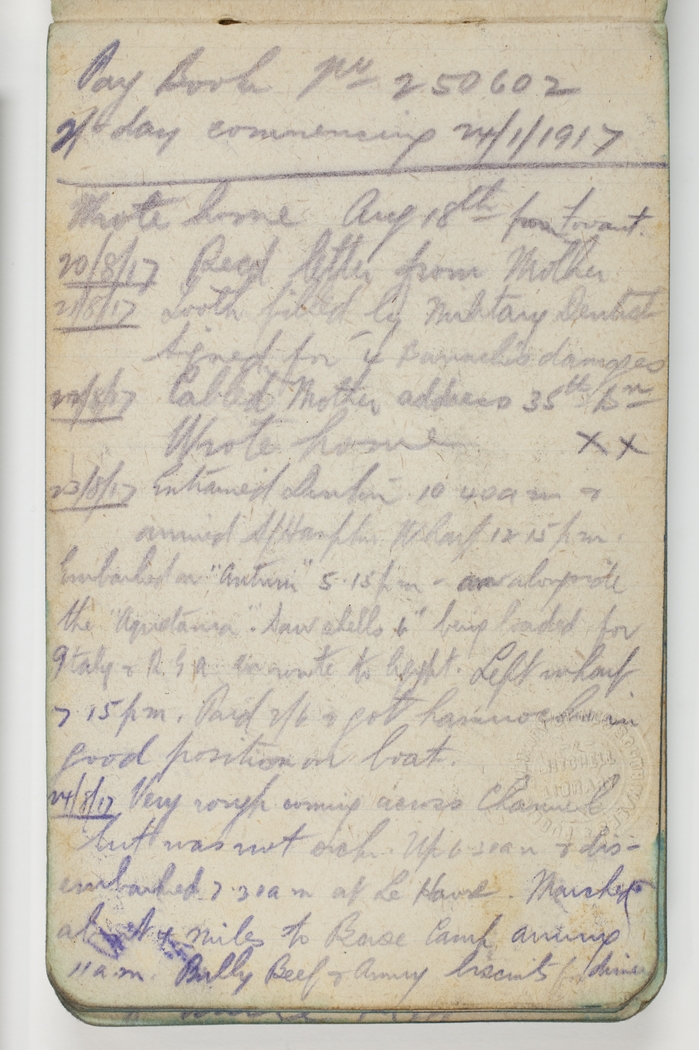 Pay Book No 250602
2/- day commencing 24/1/1917
Wrote home Aug 18th
20/8/17 Recd letter from Mother
21/8/17 Tooth filled by Military Dentist
Signed for 4 Barracks damages
22/8/17 Cabled Mother address 35th Bn
Wrote home XX
23/8/17 Entrained 10 40 a m &
arrived S/Hampton Wharf 12 15 p m.
Embarked on "Antrim" 5.15 p m - alongside
the "Aquitania". Saw shells 6" being loaded for
Italy & R.G.A en route to Egypt. Left wharf
7 15 p m. Paid 2/6 & got hammock in
good position on boat.
24/8/17 Very rough coming across Channel
but was not sick. Up 6 30 a m & dis-
embarked 7.30 a m at Le Havre. Marched
about 4 miles to Base Camp arriving
11 a.m. Bully Beef & Army biscuits for dinner